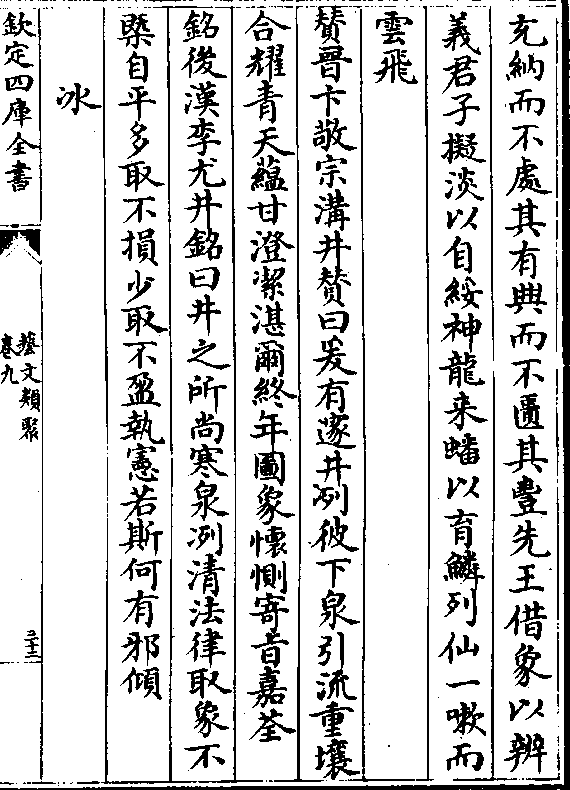 充納而不處其有與而不匱其豊先王借象以辨
義君子擬淡以自綏神龍来蟠以育鱗列仙一嗽而
雲飛
賛晉卞敬宗溝井賛曰爰有邃井冽彼下泉引流重壤
合耀青天蘊甘澄潔湛爾終年圖象懷惻寄旨嘉荃
銘後漢李尤井銘曰井之所尚寒泉冽清法律取象不
槩自平多取不損少取不盈執憲若斯何有邪傾
冰
欽定四庫全書
藝文類聚
卷九
二十三